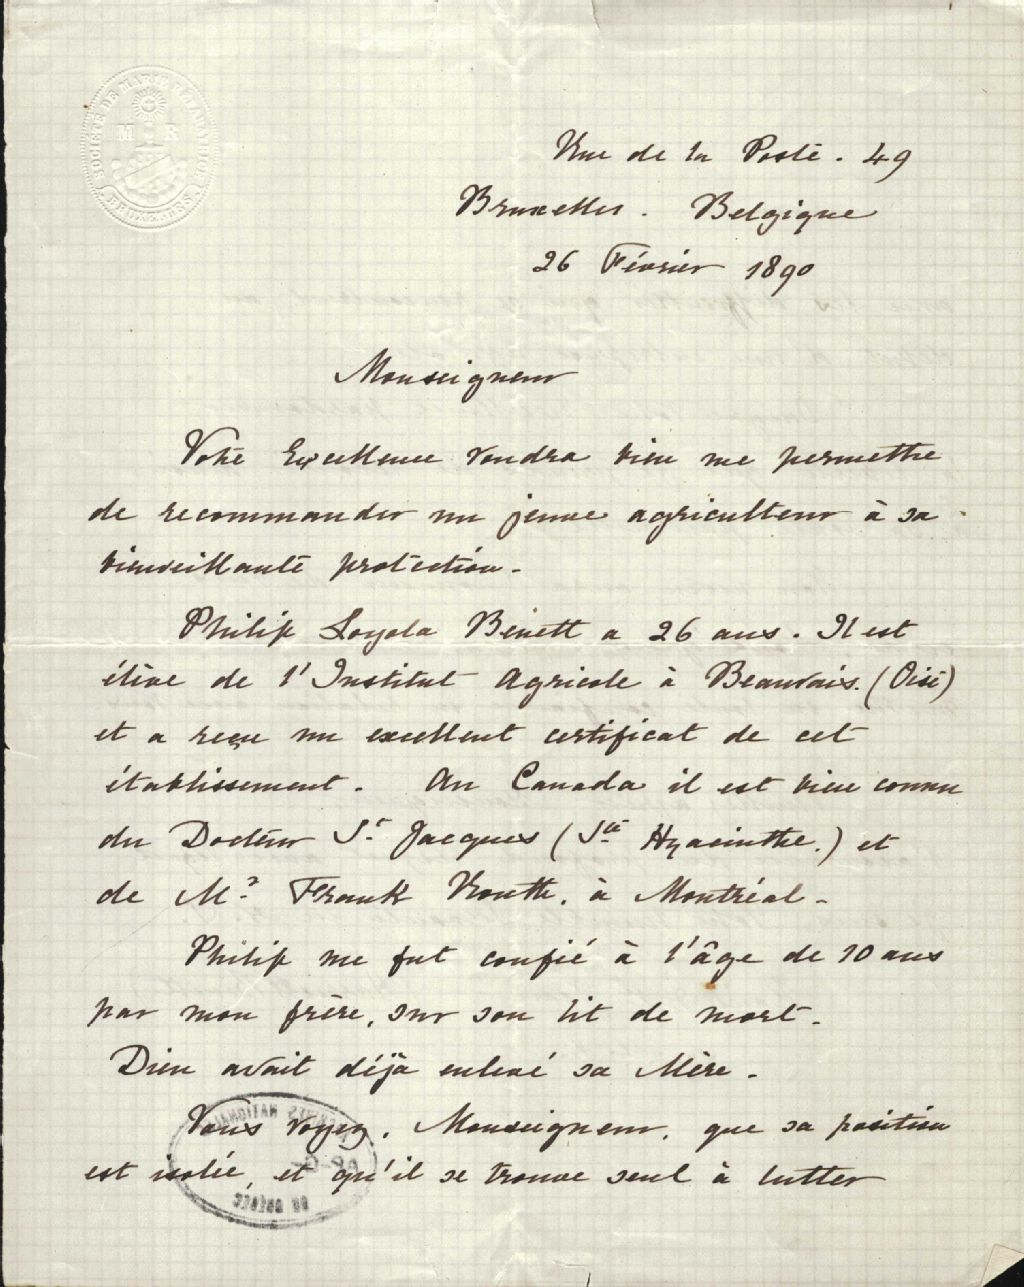 SOCIÉTÉ DE MARIE RÉPARATRICE
M R
BRUXELLES
Rue de la Poste. 49
Bruxelles. Belgique
26 Février 1890
Monseigneur
Votre Excellence voudra bien me permettre
de recommander un jeune agriculteur à sa
bienveillante protection.
Philip Loyola Benett a 26 ans. Il est
élève de l'Institut Agricole à Beauvais. (Oise)
et a reçu un excellent certificat de cet
établissement. Au Canada il est bien connu
du Docteur St Jacques (Ste Hyacinthe.) et
de Mr Frank Routh, à Montréal.
Philip me fut confié à l'âge de 10 ans
par mon frère, sur son lit de mort.
Dieu avait déjà enlevé sa Mère.
Vous voyez, Monseigneur, que sa position
est isolée, et qu'il se trouve seul à lutter
ARCHIVES NATIONALES
DU QUÉBEC